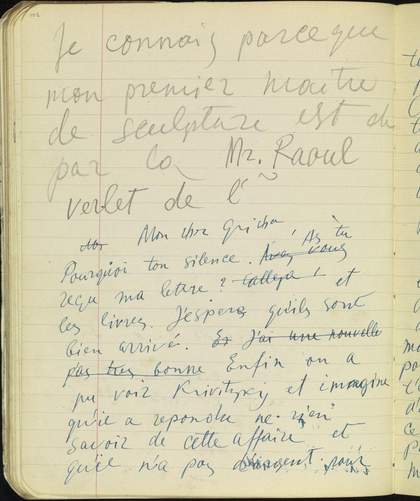 Je connais parceque
mon premier maitre
de sculpture est de
par la Mr. Raoul
verlet de l'
Mon cher Gricha
Pourquoi ton silence. Avez vous As tu
reçu ma letere ? et
les livres. J'espere qu'ils sont
bien arrivé. Et j'ai une nouvelle
pas tres bonne Enfin on a
pu voir Krivitzky et imagine
qu'il a repondu ne rien
savoir de cette affaire et
qu'il n'a pas d'argent pour